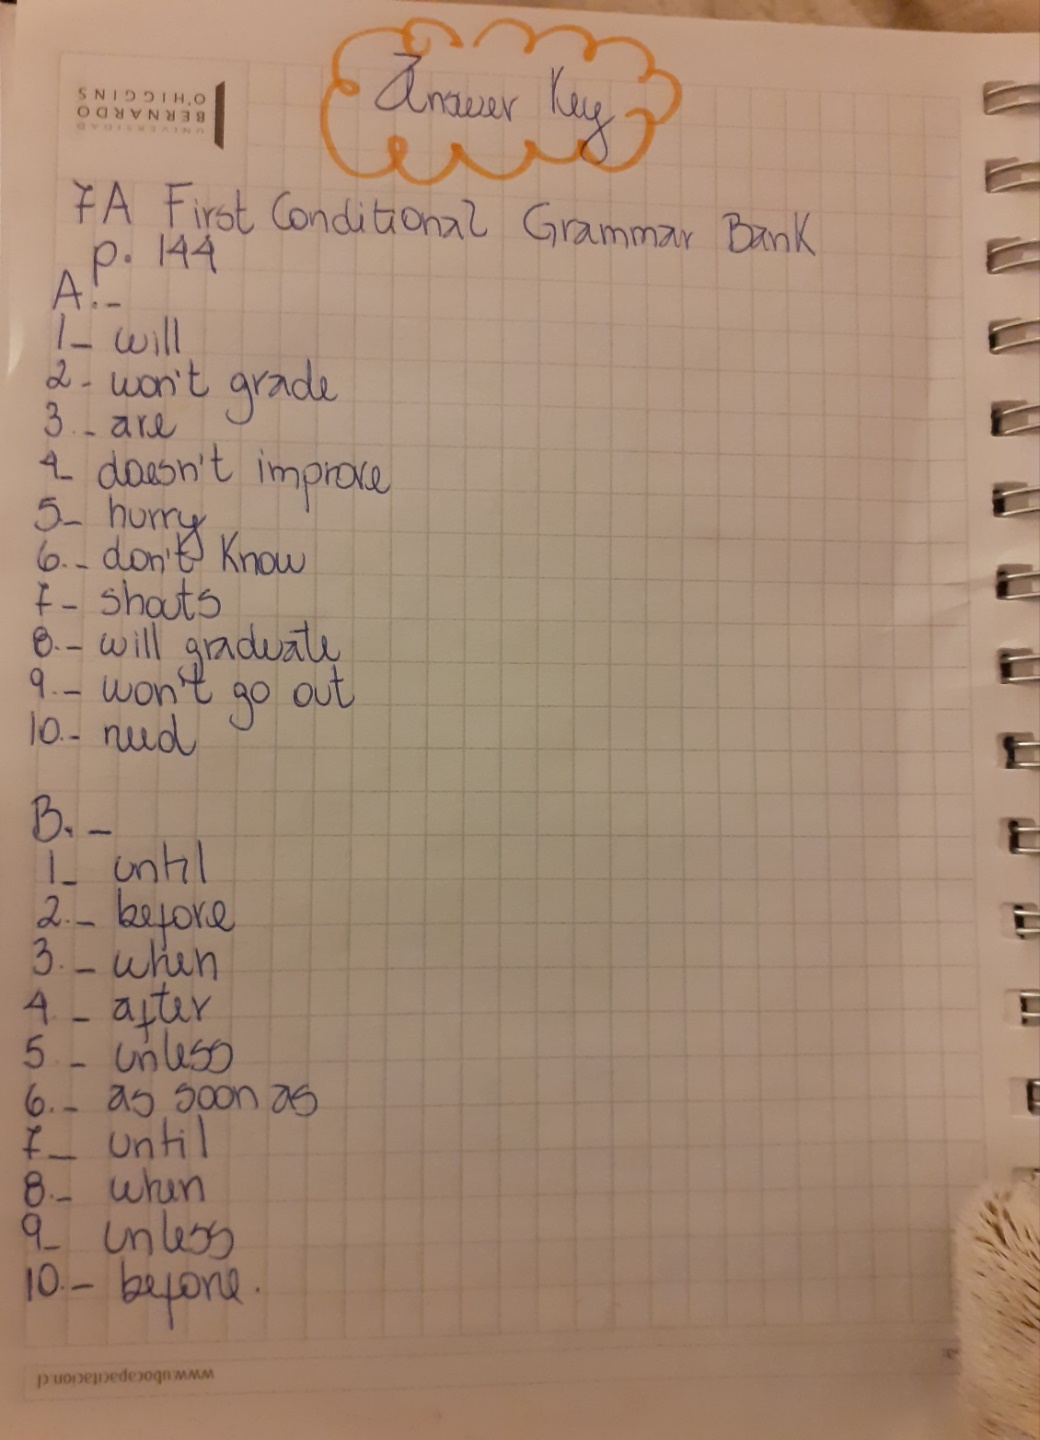 Answer Key
UNIVERSIDAD
BERNARDO
O'HIGGINS
7A First Conditional Grammar Bank
p. 144
A.-
1- will
2- won't grade
3.- are
4- doesn't improve
5- hurry
6.- don't know
7- shouts
8.- will graduate
9.- won't go out
10.- need
B.-
1- until
2.- before
3.- when
4.- after
5.- unless
6.- as soon as
7- until
8.- when
9- unless
10.- before.
www.ubocapacitacion.cl